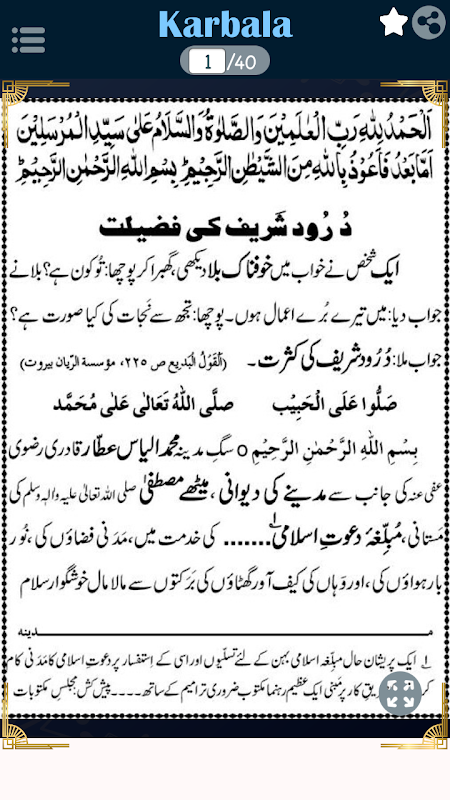 Karbala
1/40
اَلْحَمْدُ لِلّٰهِ رَبِّ الْعٰلَمِیْنَ وَالصَّلٰوةُ وَالسَّلَامُ عَلٰی سَیِّدِ الْمُرْسَلِیْنَ
اَمَّا بَعْدُ فَاَعُوْذُ بِاللّٰهِ مِنَ الشَّیْطٰنِ الرَّجِیْمِ ؕ بِسْمِ اللّٰهِ الرَّحْمٰنِ الرَّحِیْمِ ؕ
دُرُود شَریف کی فضیلت
ایک شخص نے خواب میں خوفناک بلا دیکھی، گھبرا کر پوچھا: تُو کون ہے؟ بلا نے
جواب دیا: میں تیرے بُرے اعمال ہوں۔ پوچھا: تجھ سے نَجات کی کیا صورت ہے؟
جواب ملا: دُرُود شریف کی کثرت۔ (اَلْقَوْلُ الْبَدِیع ص ۲۲۵، مؤسسة الریّان بیروت)
صَلُّوا عَلَی الْحَبِیْب صلَّی اللّٰهُ تَعَالٰی عَلٰی مُحَمَّد
بِسْمِ اللّٰهِ الرَّحْمٰنِ الرَّحِیْمِ o سگِ مدینہ محمد الیاس عطّار قادری رضوی
عفی عنہ کی جانب سے مدینے کی دیوانی، میٹھے مصطفٰی صلی اللہ تعالیٰ علیہ واٰلہٖ وسلم کی
مَستانی، مُبلِّغۂ دعوتِ اسلامی ۱؎ ....... کی خدمت میں، مَدَنی فضاؤں کی، نُور
بار ہواؤں کی، اور وَہاں کی کیف آور گھٹاؤں کی بَرَکتوں سے مالا مال خوشگوار سلام
مدینہ
۱؎ ایک پریشان حال مبلِّغہ اسلامی بہن کے لئے تسلّیوں اور اسی کے اِستفسار پر دعوتِ اسلامی کا مَدَنی کام
طریقِ کار پر مَبنی ایک عظیم رہنما مکتوب ضروری ترامیم کے ساتھ۔۔۔۔ پیش کش مجلس مکتوبات